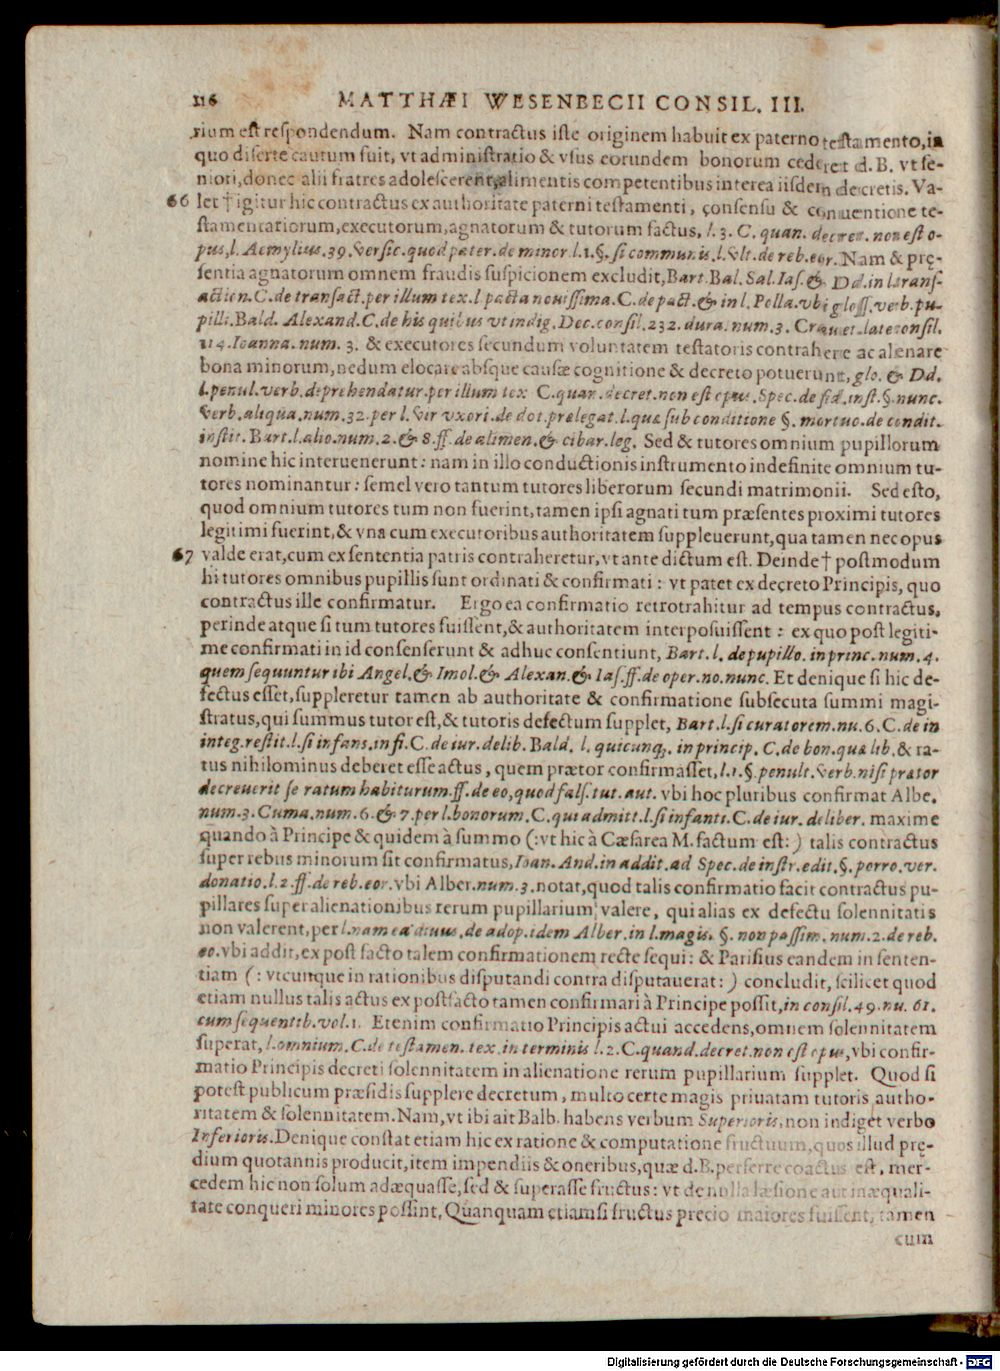 116 MATTHÆI WESENBECII CONSIL. III.
rium est respondendum. Nam contractus iste originem habuit ex paterno testamento, in
quo diserte cautum fuit, vt administratio & vsus eorundem bonorum cederet d. B. vt se-
niori, donec alii fratres adolescerent, alimentis competentibus interea iisdem decretis. Va-
66 let † igitur hic contractus ex authoritate paterni testamenti, consensu & conuentione te-
stamentariorum, executorum, agnatorum & tutorum factus, l. 3. C. quan. decret. non est o-
pus, l. Aemylius. 39. versic. quod pater. de minor l. 1. §. si communis. l. vlt. de reb. eor. Nam & prę-
sentia agnatorum omnem fraudis suspicionem excludit, Bart. Bal. Sal. Ias. & Dd. in l. transf-
action. C. de transact. per illum tex. l pacta nouissima. C. de pact. & in l. Polla. vbi gloss. verb. pu-
pilli. Bald. Alexand. C. de his quibus vt indig. Dec. consil. 232. dura. num. 3. Crauet. late consil.
114. Ioanna. num. 3. & executores secundum voluntatem testatoris contrahere ac alienare
bona minorum, nedum elocare absque causæ cognitione & decreto potuerunt, glo. & Dd.
l. penul. verb. deprehendatur. per illum tex C. quan. decret. non est opus. Spec. de fid. inst. §. nunc.
verb. aliqua. num. 32. per l. vir vxori. de dot. prelegat. l. quæ sub conditione §. mortuo. de condit.
instit. Bart. l. alio. num. 2. & 8. ff. de alimen. & cibar. leg. Sed & tutores omnium pupillorum
nomine hic interuenerunt: nam in illo conductionis instrumento indefinite omnium tu-
tores nominantur: semel vero tantum tutores liberorum secundi matrimonii. Sed esto,
quod omnium tutores tum non fuerint, tamen ipsi agnati tum præsentes proximi tutores
legitimi fuerint, & vna cum executoribus authoritatem suppleuerunt, qua tamen nec opus
67 valde erat, cum ex sententia patris contraheretur, vt ante dictum est. Deinde † postmodum
hi tutores omnibus pupillis sunt ordinati & confirmati: vt patet ex decreto Principis, quo
contractus ille confirmatur. Ergo ea confirmatio retrotrahitur ad tempus contractus,
perinde atque si tum tutores fuissent, & authoritatem interposuissent: ex quo post legiti-
me confirmati in id consenserunt & adhuc consentiunt, Bart. l. de pupillo. in princ. num. 4.
quem sequuntur ibi Angel. & Imol. & Alexan. & Ias. ff. de oper. no. nunc. Et denique si hic de-
fectus esset, suppleretur tamen ab authoritate & confirmatione subsecuta summi magi-
stratus, qui summus tutor est, & tutoris defectum supplet, Bart. l. si curatorem. nu. 6. C. de in
integ. restit. l. si infans. in fi. C. de iur. delib. Bald. l. quicunq́;. in princip. C. de bon. quæ lib. & ra-
tus nihilominus deberet esse actus, quem prætor confirmasset, l. 1. §. penult. verb. nisi prætor
decreuerit se ratum habiturum. ff. de eo, quod fals. tut. aut. vbi hoc pluribus confirmat Albe.
num. 3. Cuma. num. 6. & 7. per l. bonorum. C. qui admitt. l. si infanti. C. de iur. deliber. maxime
quando à Principe & quidem à summo (: vt hic à Cæsarea M. factum est: ) talis contractus
super rebus minorum sit confirmatus, Ioan. And. in addit. ad Spec. de instr. edit. §. porro. ver.
donatio. l. 2. ff. de reb. eor. vbi Alber. num. 3. notat, quod talis confirmatio facit contractus pu-
pillares super alienationibus rerum pupillarium valere, qui alias ex defectu solennitatis
non valerent, per l. nam ea diuus. de adop. idem Alber. in l. magis. §. non passim. num. 2. de reb.
eo. vbi addit, ex post facto talem confirmationem recte sequi: & Parisius eandem in senten-
tiam (: vtcunque in rationibus disputandi contra disputauerat: ) concludit, scilicet quod
etiam nullus talis actus ex postfacto tamen confirmari à Principe possit, in consil. 49. nu. 61.
cum sequentib. vol. 1. Etenim confirmatio Principis actui accedens, omnem solennitatem
superat, l. omnium. C. de testamen. tex. in terminis l. 2. C. quand. decret. non est opus, vbi confir-
matio Principis decreti solennitatem in alienatione rerum pupillarium supplet. Quod si
potest publicum præsidis supplere decretum, multo certe magis priuatam tutoris autho-
ritatem & solennitatem. Nam, vt ibi ait Balb. habens verbum Superioris, non indiget verbo
Inferioris. Denique constat etiam hic ex ratione & computatione fructuum, quos illud prę-
dium quotannis producit, item impendiis & oneribus, quæ d. B. perferre coactus est, mer-
cedem hic non solum adæquasse, sed & superasse fructus: vt de nulla læsione aut inæquali-
tate conqueri minores possint, Quanquam etiamsi fructus precio maiores fuissent, tamen
cum
Digitalisierung gefördert durch die Deutsche Forschungsgemeinschaft - DFG